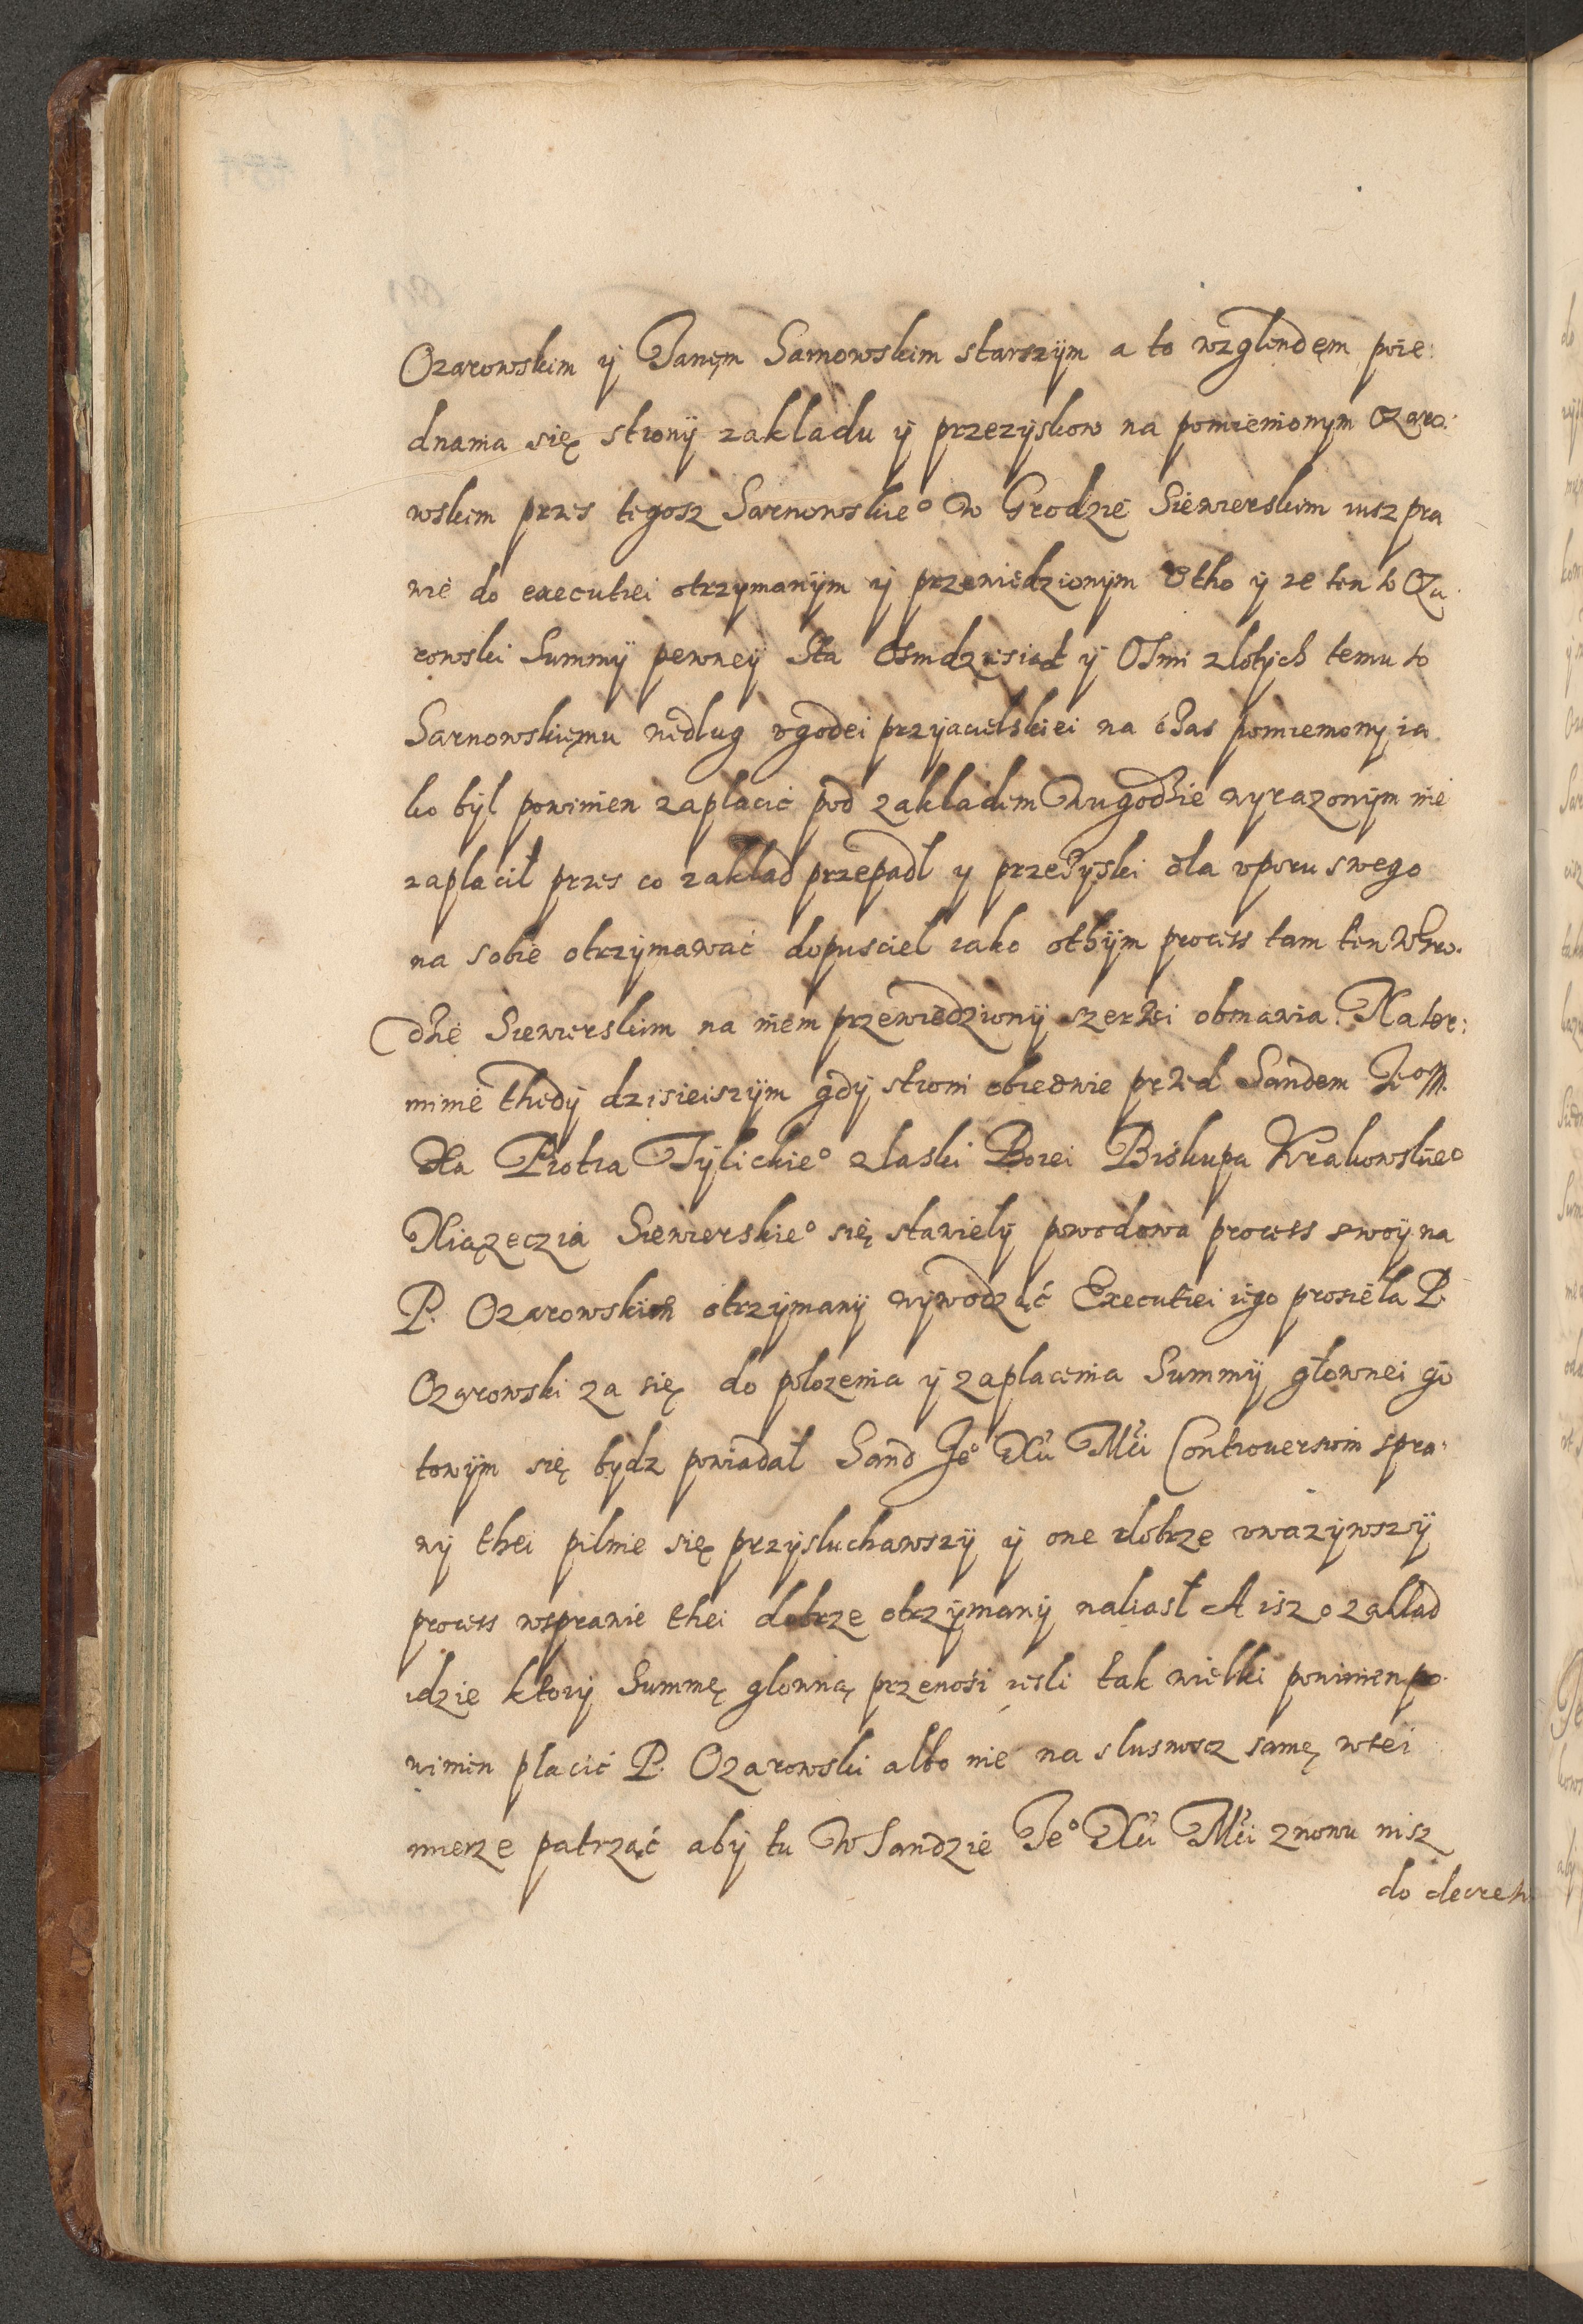 Ozarowskim ÿ Janęm Sarnowskim starszÿm a to wzglendęm poie:
dnania się stronÿ zakladu ÿ przezyskow na pomienionym Ozaro:
wskim przes tegosz Sarnowskie° w Grodzie Siewierskim iusz pra
wie do executiei otrzymanÿm ÿ przewiedzionÿm Otho ÿ ze ten to Oza
rowski Summÿ pewneÿ Sta Osmdziesiąt ÿ Osmi zlotÿch temu to
Sarnowskięmu wedlug vgodei przÿiacielskiei na czas pomieniony ia
ko bÿl powinien zaplacić pod zakladem w ugodzie wyrazonÿm nie
zaplacił przes co zaklad przepadl y przezyski dla vporu swego
na sobie otrzÿmawać dopusciel iako othÿm process tam ten w Gro:
dzie Siewierskim na niem przewiedzionÿ szerzei obmawia. Na ter:
minie thedÿ dzisieiszÿm gdÿ stroni obiedwie przed Sandem Je° M.
Xa Piotra Tÿlickie° z laski Bozei Biskupa Krakowskie°
Xiązeczia Siewierskie° się stawielÿ powodowa process swoÿ na
P. Ozarowskiem otrzÿmanÿ wÿwodząć Executiei iego prosiela P.
Ozarowski za się do polozenia ÿ zaplacenia Summÿ głownei go
towÿm się bydz powiadał Sand Je° Xii Mci Controuersiom spra:
wÿ thei pilnie się przÿsluchawszÿ ÿ one dobrze vwazÿwszÿ
process wsprawie thei dobrze otrzÿmanÿ naliasł A isz o zaklad
idzie ktorÿ Summę glowną przenosi iesli tak wielki powinien po
winien placić P. Ozarowski albo nie na slusnoscz samę wtei
mierze patrząć abÿ tu w Sandzie Je° Xii Mci znowu nisz
do decretu